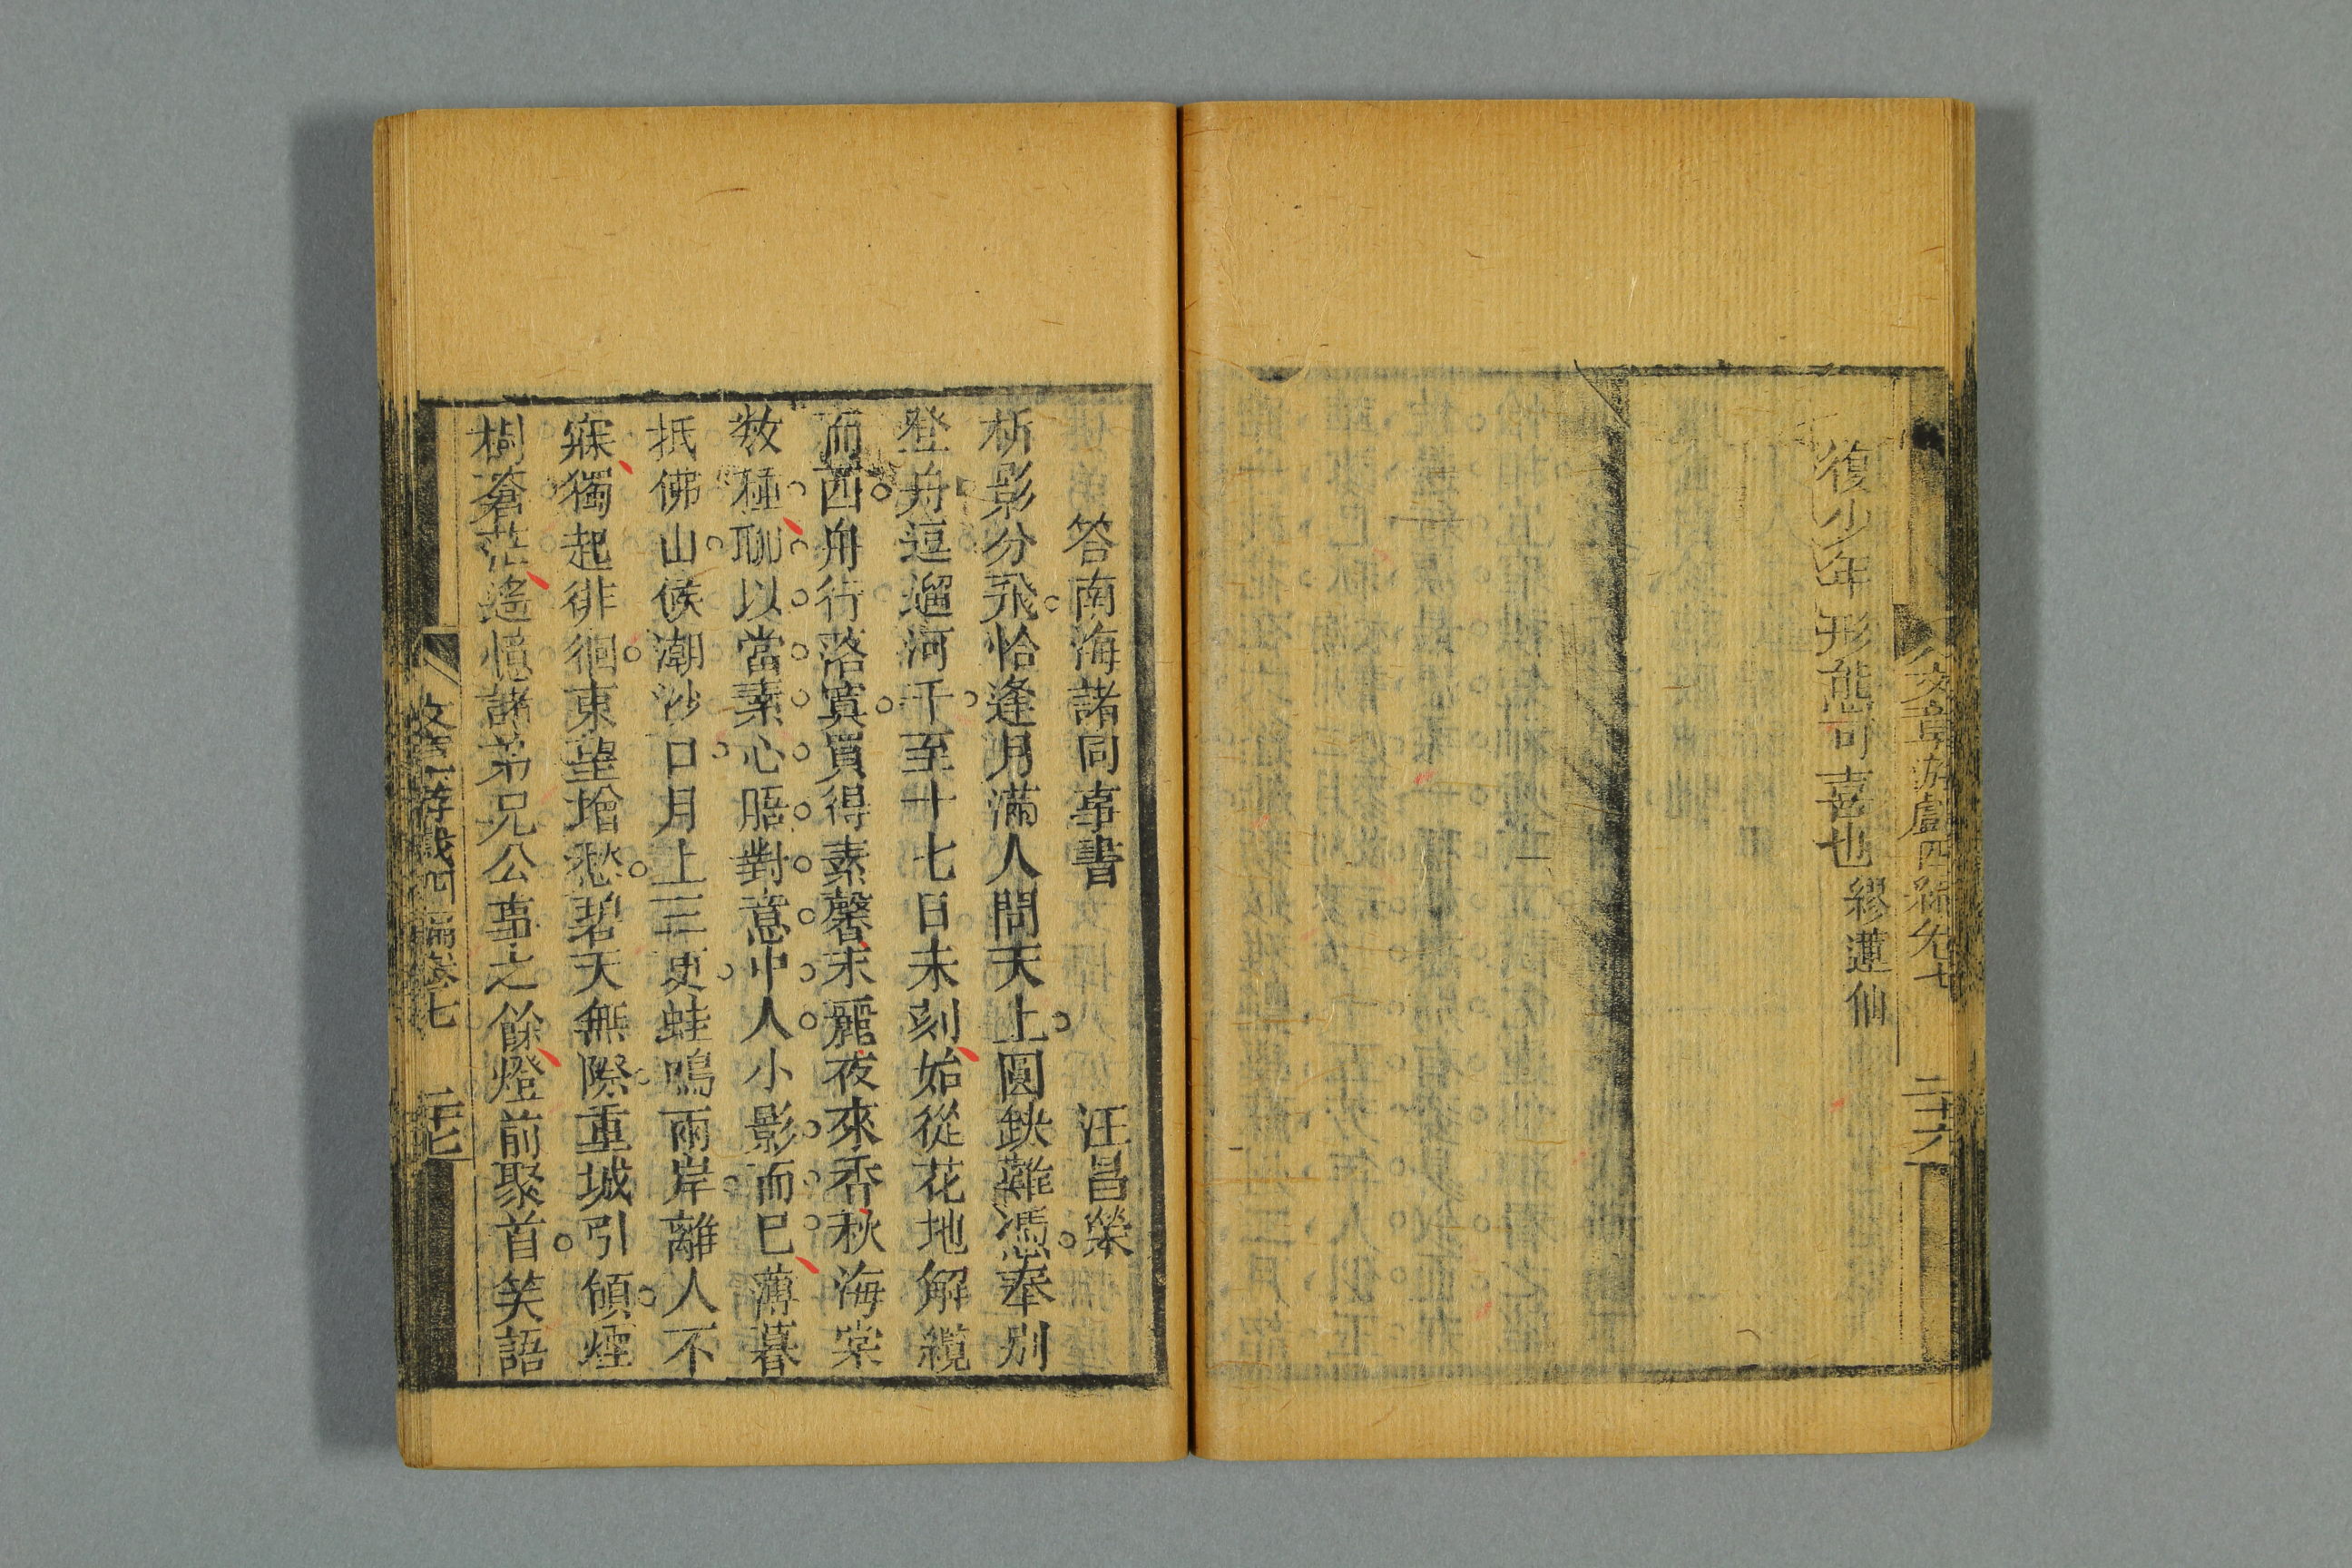 文章游戲四編卷七 二十六
復少年形態可喜也繆蓮仙
答南海諸同事書 汪昌榮
析影分飛恰逢月滿人間天上圓鈌難憑奉別
登舟逗遛河干至十七日未刻始從花地解纜
而西舟行落寞買得素馨末麗夜來香秋海棠
數種聊以當素心晤對意中人小影而已薄暮
抵佛山候潮沙口月上三更蛙鳴兩岸離人不
寐獨起徘徊東望增愁碧天無際重城引領煙
樹蒼茫遙憶諸弟兄公事之餘燈前聚首笑語
文章游戲四編卷七 二十七